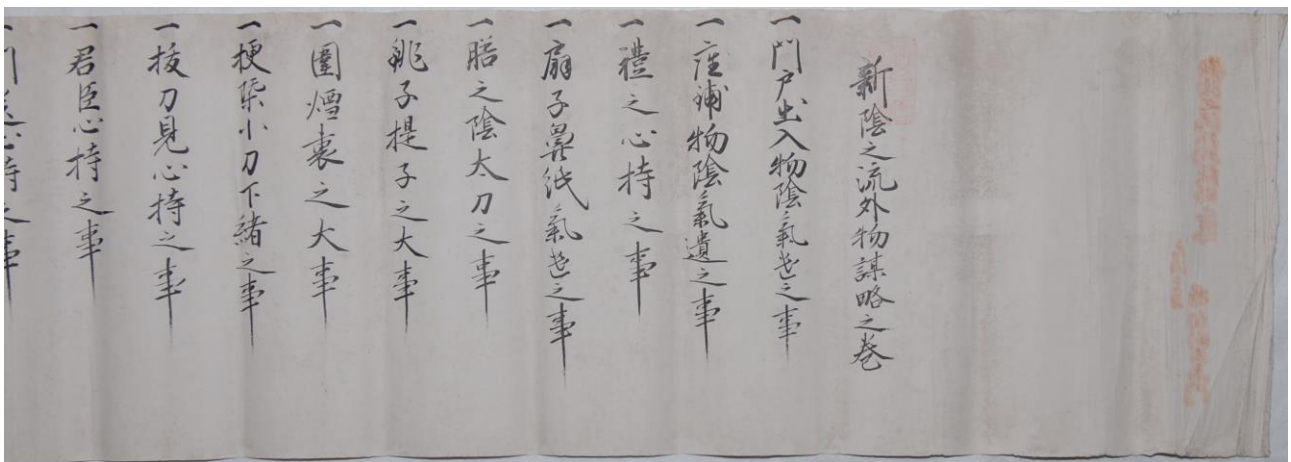 新陰之流外物謀略之巻
一門戸出入物陰氣遣之事
一座鋪物陰氣遣之事
一禮之心持之事
一扇子鼻紙氣遣之事
一膳之陰太刀之事
一銚子提子之大事
一圍爐裏之大事
一梗柒小刀下緒之事
一拔刀見心持之事
一君臣心持之事
一門送心持之事